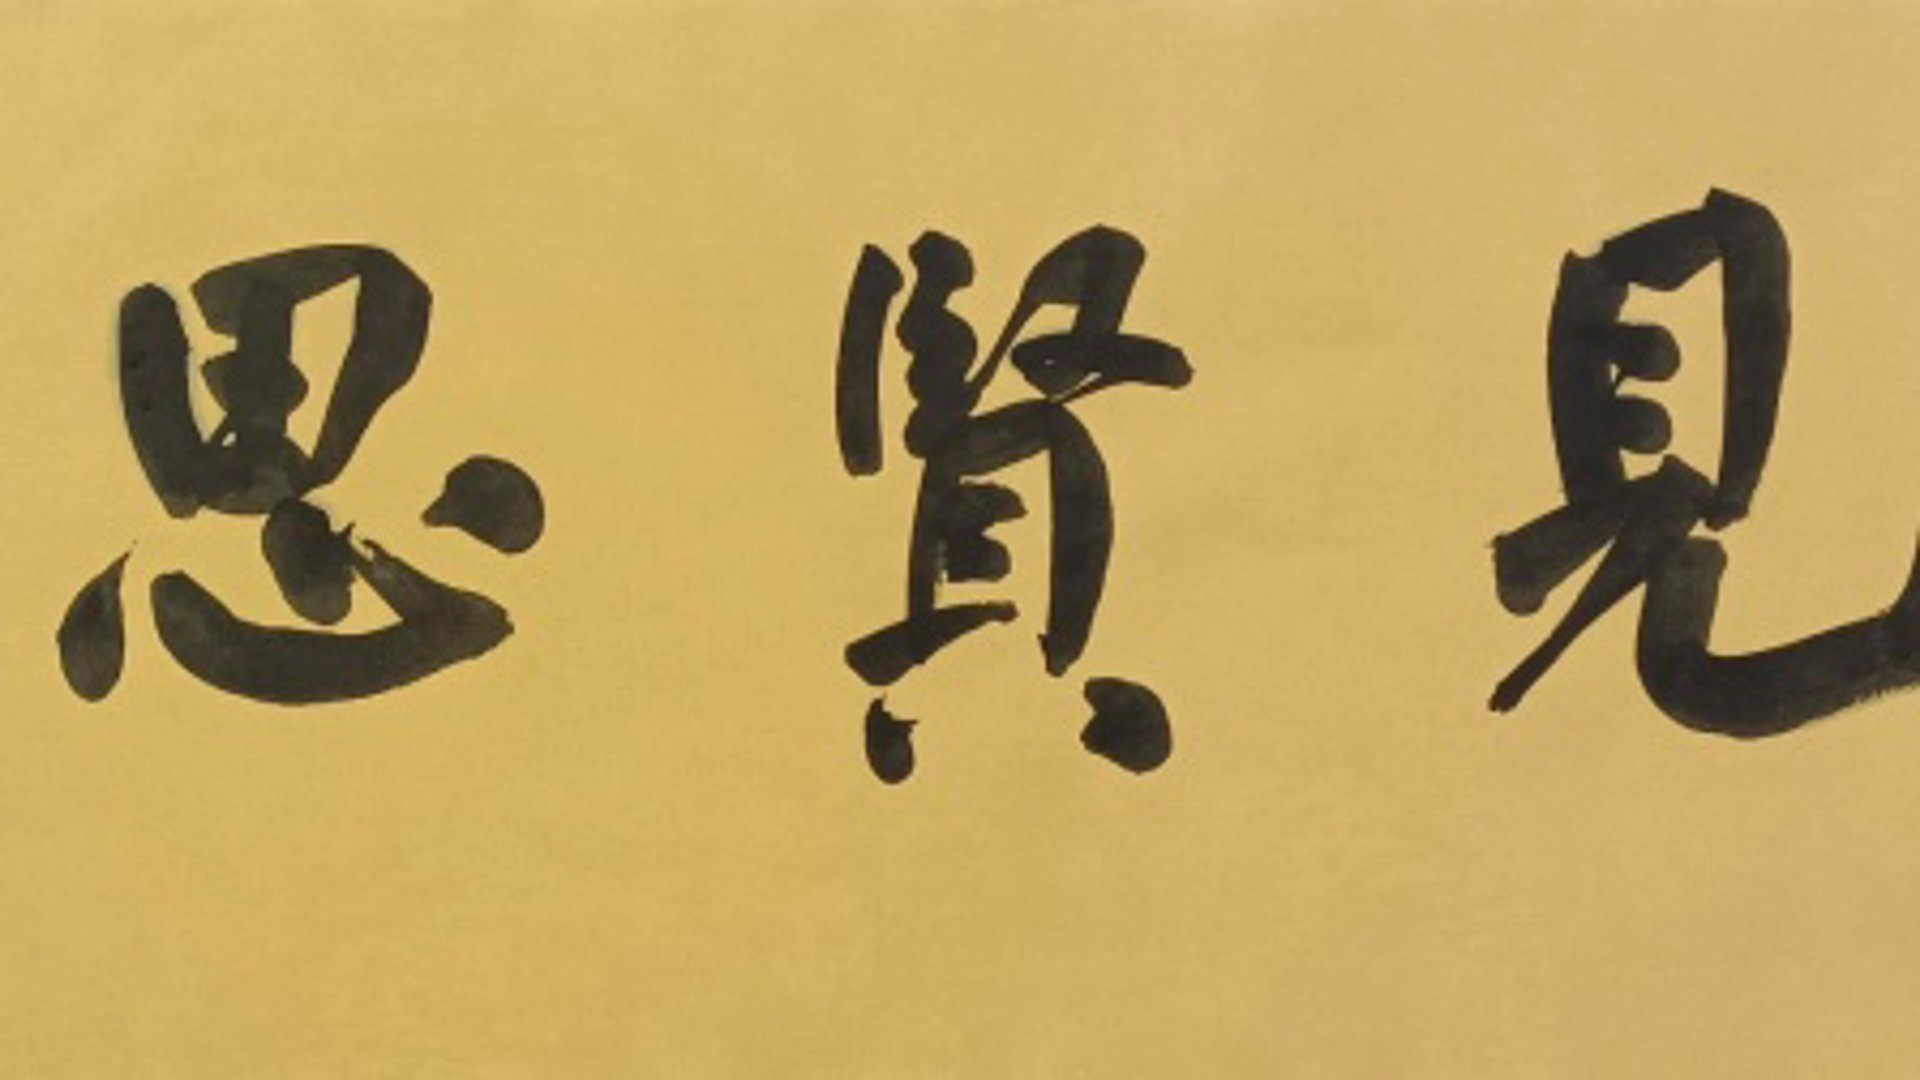 見賢思